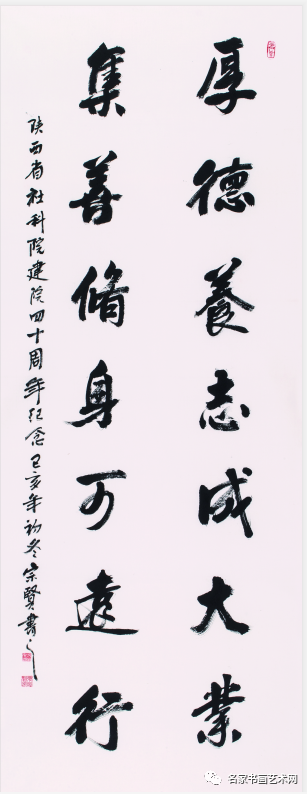 厚德養志成大業
集善脩身可遠行
陕西省社科院建院四十周年纪念己亥年初冬宗賢書之
名家书画艺术网